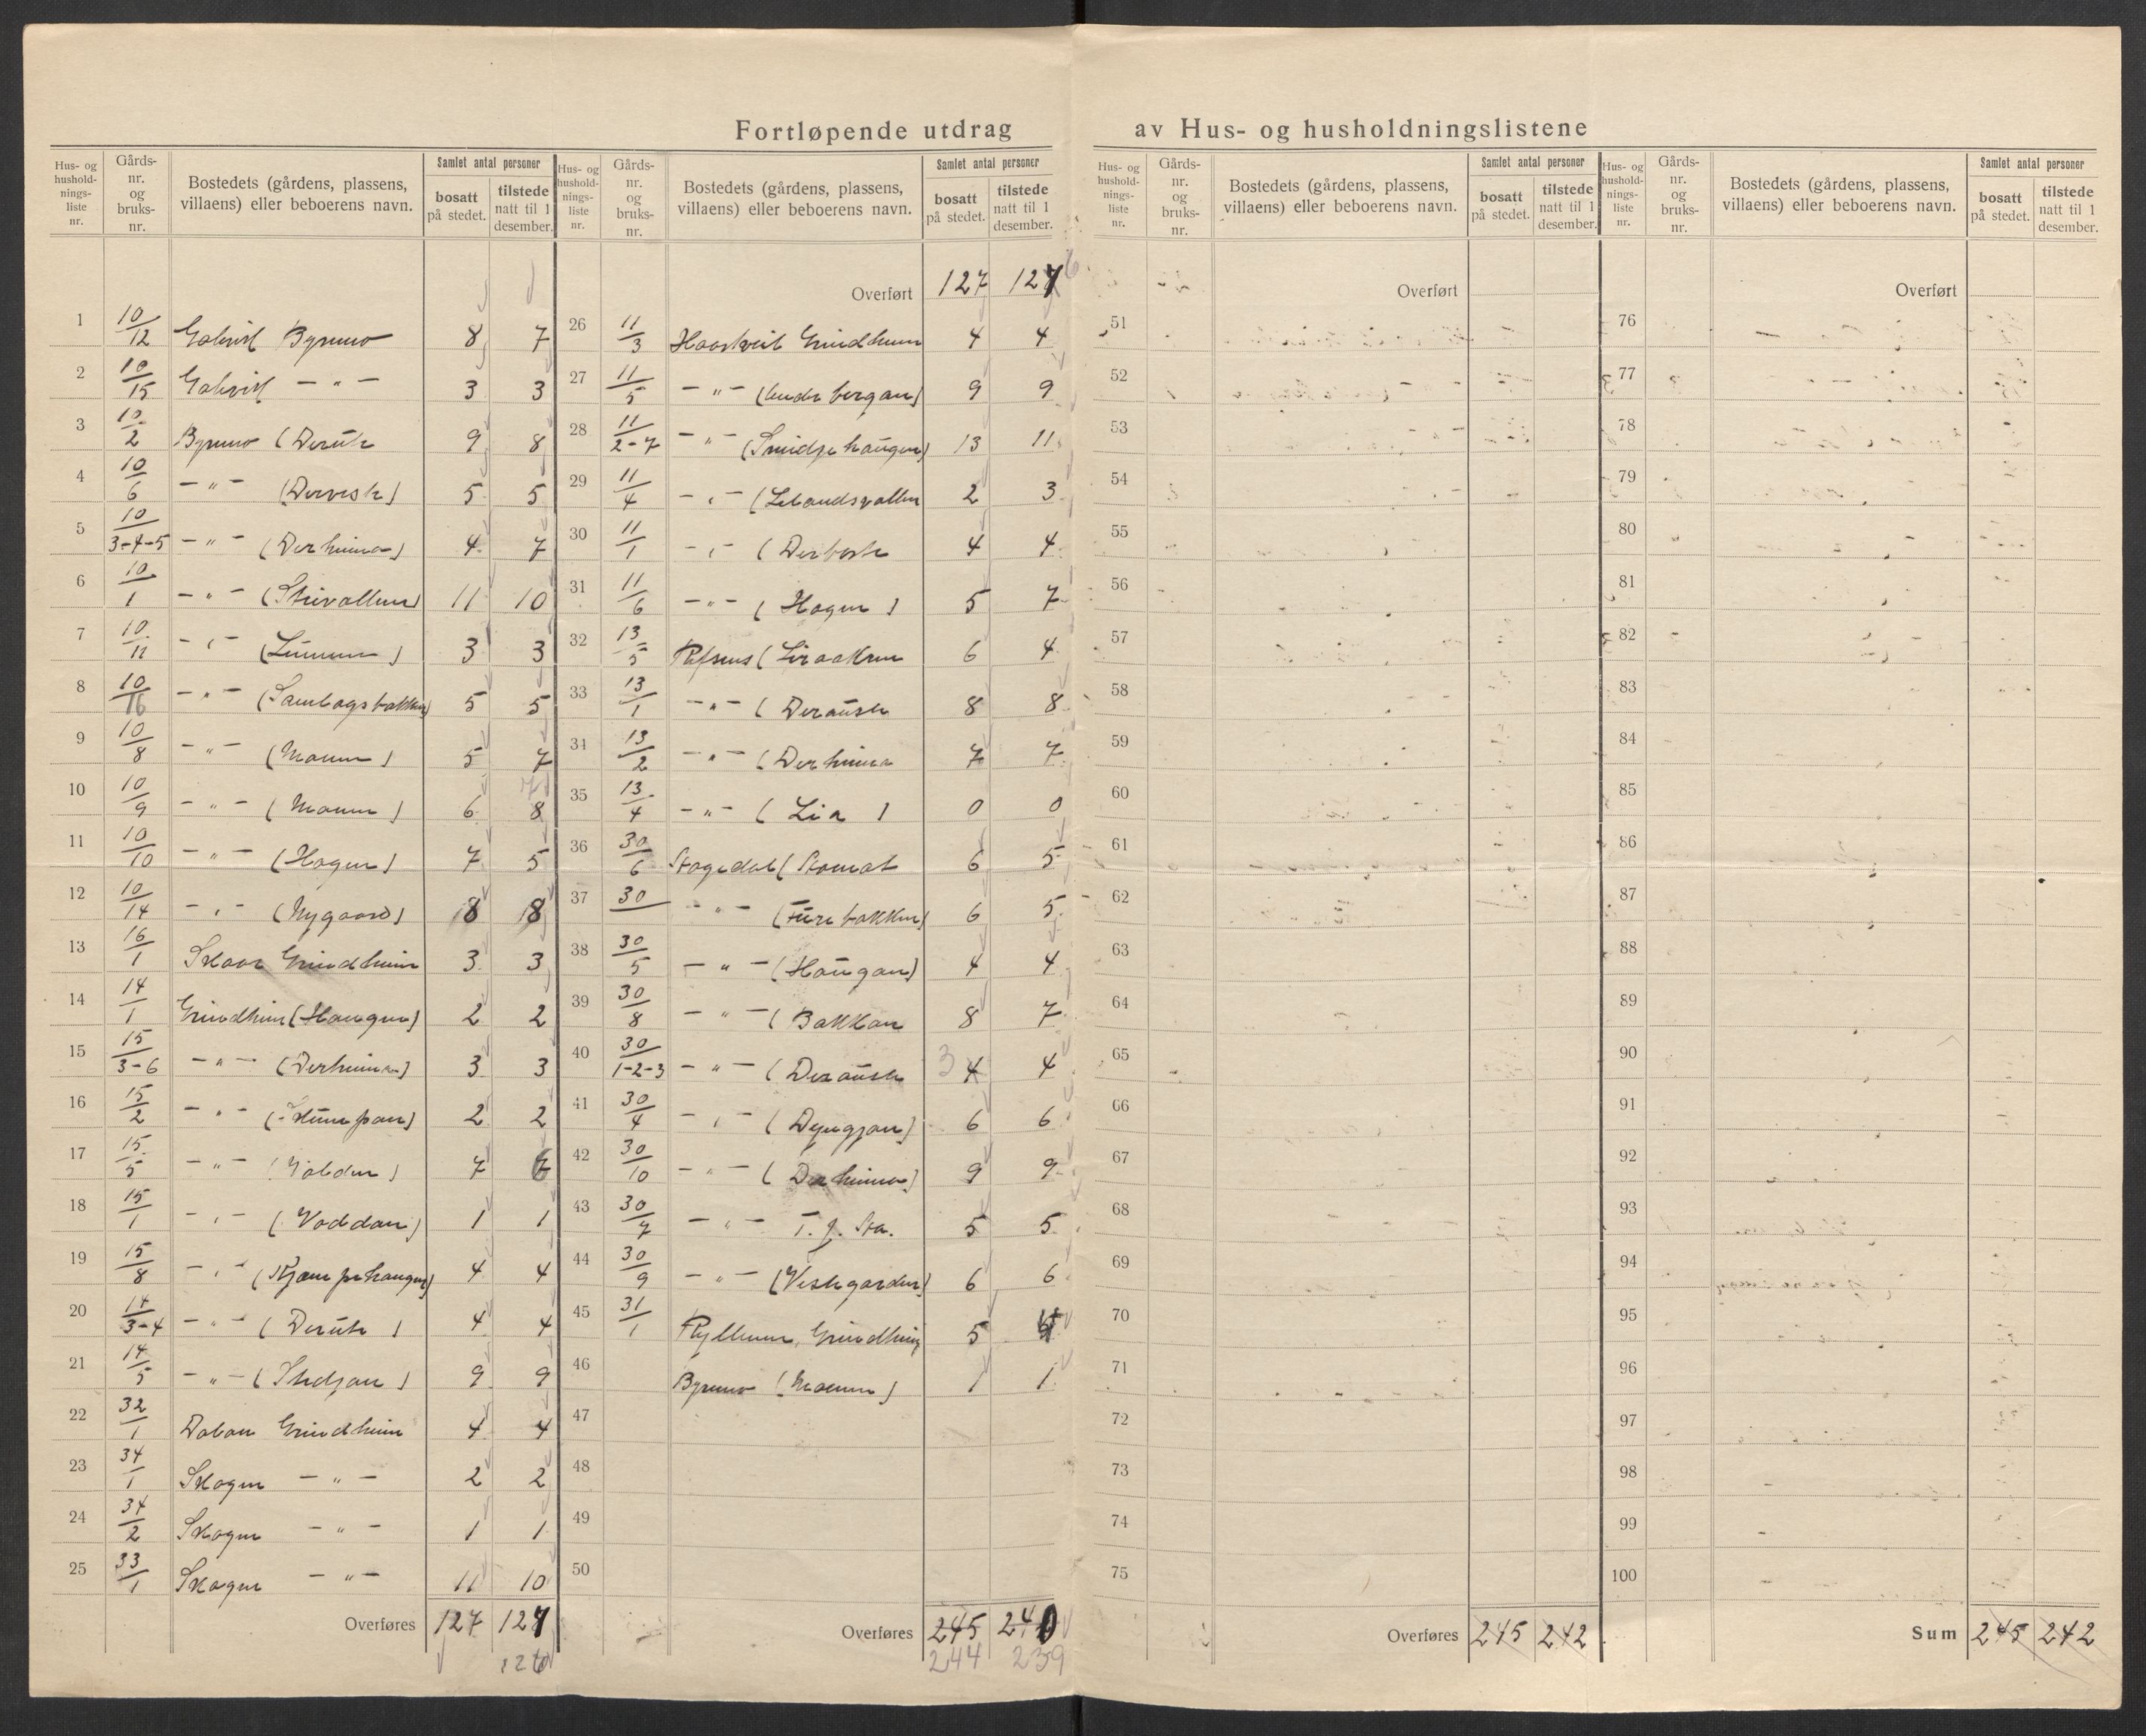 Fortløpende utdrag av Hus- og husholdningslistene
Hus- og hushold-nings-liste nr. | Gårds-nr. og bruks-nr. | Bostedets (gårdens, plassens, villaens) eller beboerens navn. | Samlet antal personer | bosatt på stedet. | tilstede natt til 1 desember.
1 10/12 8 7
2 10/15 — " — 3 3
3 10/2 9 8
4 10/6 — " — 5 5
5 10/3-4-5 — " — 4 7
6 10/1 — " — 11 10
7 10/11 — " — 3 3
8 10/16 — " — 5 5
9 10/8 — " — (Moeun) 5 7
10 10/9 — " — (Moeun) 6 8 7
11 10/10 — " — (Hagen) 7 5
12 10/14 — " — (Nygaard) 8 8
13 16/1 Skaar Grindheim 3 3
14 14/1 Grindheim (Haugen) 2 2
15 15/3-6 — " — (Derheima) 3 3
16 15/2 — " — 2 2
17 15/5 — " — 7
18 15/1 — " — (Voddan) 1 1
19 15/8 — " — (Kjempehaugen) 4 4
20 14/3-4 — " — (Derute) 4 4
21 14/5 — " — 9 9
22 32/1 Dalan Grindheim 4 4
23 34/1 Skogen — " — 2 2
24 34/2 Skogen — " — 1 1
25 33/1 Skogen — " — 11 10
Overføres 127 127
126
Hus- og hushold-nings-liste nr. | Gårds-nr. og bruks-nr. | Bostedets (gårdens, plassens, villaens) eller beboerens navn. | Samlet antal personer | bosatt på stedet. | tilstede natt til 1 desember.
Overført 127 127 6
26 11/3 4 4
27 11/5 — " — 9 9
28 11/2-7 — " — 13 11
29 11/4 — " — 2 3
30 11/1 — " — 4 4
31 11/6 — " — (Hagen) 5 7
32 13/5 6 4
33 13/1 — " — (Derauste 8 8
34 13/2 — " — (Derheima 7 7
35 13/4 — " — (Lia) 0 0
36 30/6 6 5
37 30 — " — (Furebakken) 6 5
38 30/5 — " — (Haugan) 4 4
39 30/8 — " — (Bakkan 8 7
40 30/1-2-3 — " — (Derauste 3 4 4
41 30/4 — " — 6 6
42 30/10 — " — (Derheima) 9 9
43 30/7 — " — 5 5
44 30/9 — " — (Vestegarden) 6 6
45 31/1 5
46 (Moeun) 1 1
47
48
49
50
Overføres 245 240
244 239
Hus- og hushold-nings-liste nr. | Gårds-nr. og bruks-nr. | Bostedets (gårdens, plassens, villaens) eller beboerens navn. | Samlet antal personer | bosatt på stedet. | tilstede natt til 1 desember.
Overført
51
52
53
54
55
56
57
58
59
60
61
62
63
64
65
66
67
68
69
70
71
72
73
74
75
Overføres 245 242
Hus- og hushold-nings-liste nr. | Gårds-nr. og bruks-nr. | Bostedets (gårdens, plassens, villaens) eller beboerens navn. | Samlet antal personer | bosatt på stedet. | tilstede natt til 1 desember.
Overført
76
77
78
79
80
81
82
83
84
85
86
87
88
89
90
91
92
93
94
95
96
97
98
99
100
Sum 245 242